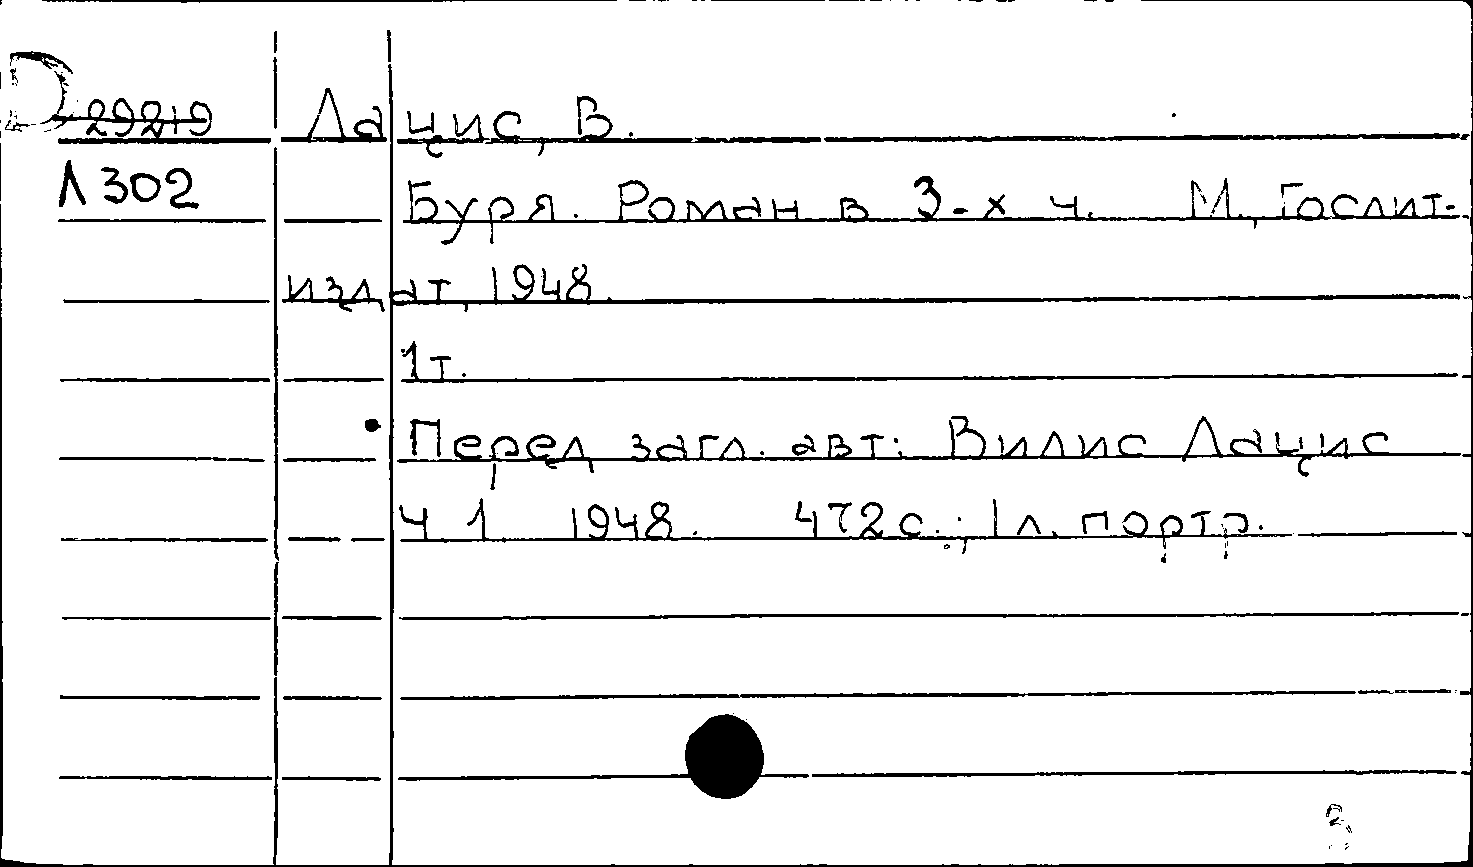 D 29219 Лацис, В.
Л302 Буря. Роман в 3-х ч. М., Гослит-
издат, 1948.
1т.
Перед загл. авт: Вилис Лацис
Ч 1 1948. 472с.; 1 л. портр.